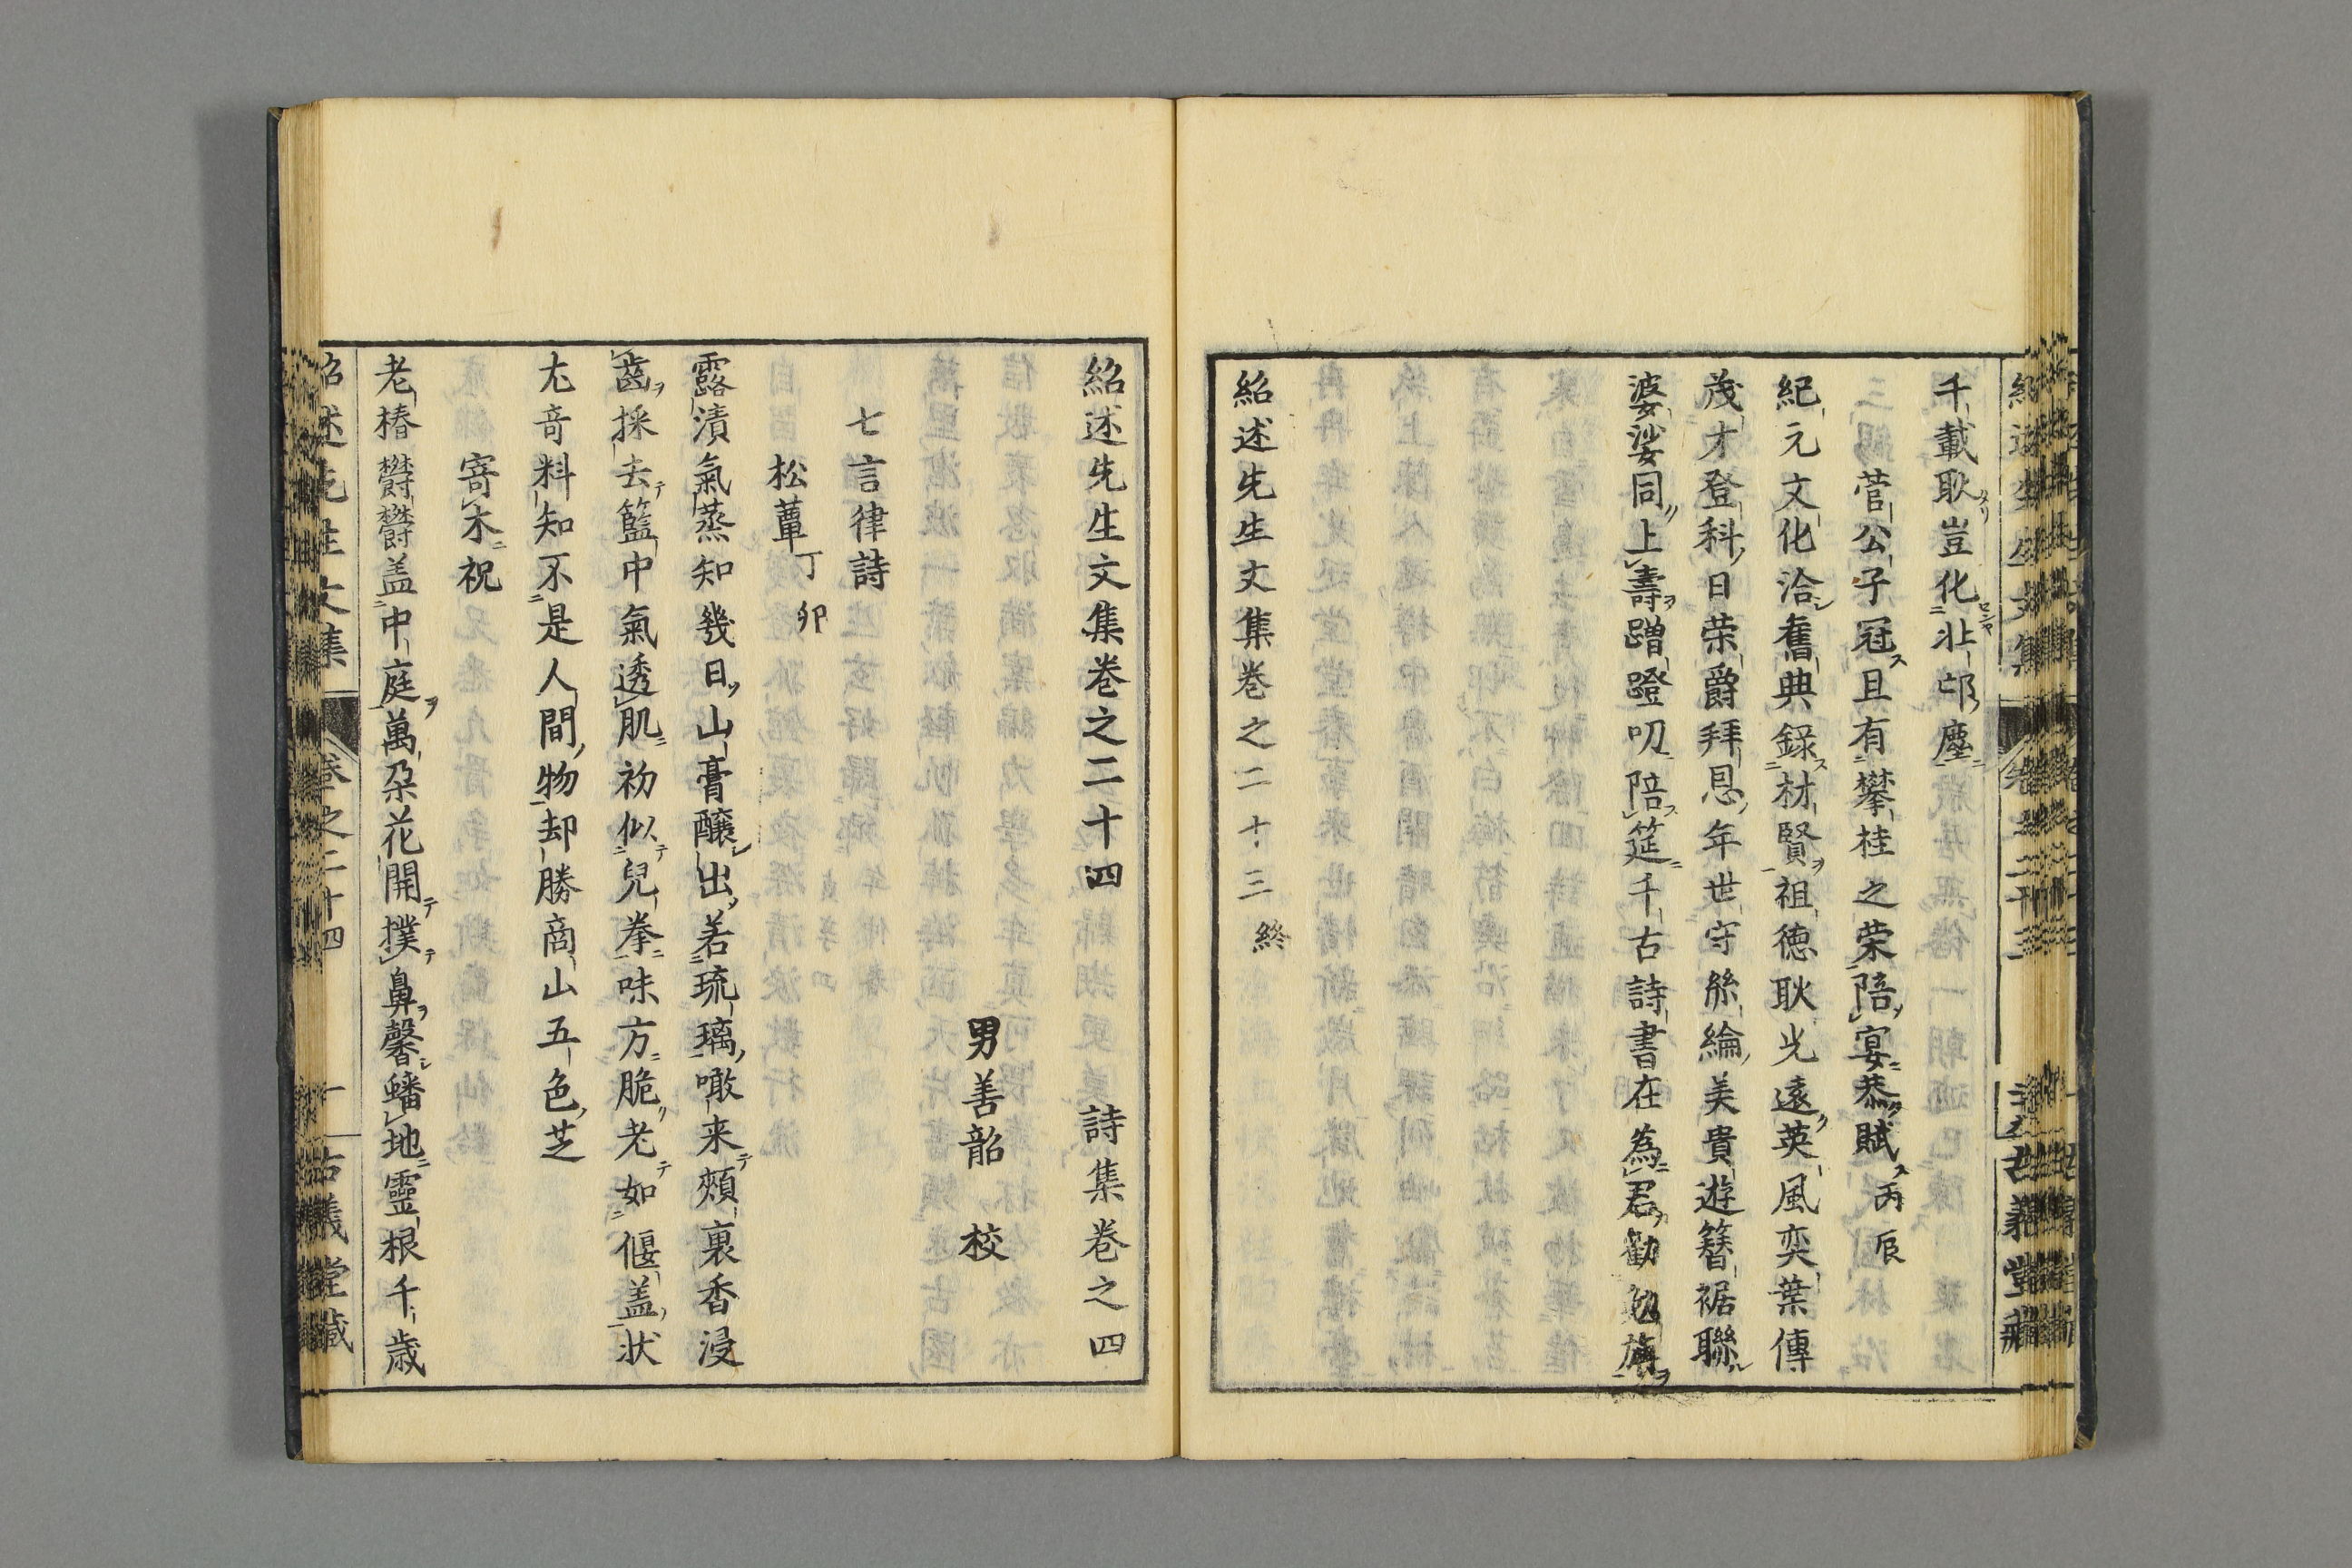 千載耿豈化北邙塵
菅公子冠且有攀桂之荣陪宴恭賦丙辰
紀元文化洽舊典録材賢祖徳耿光遠英風奕葉傳
茂才登科日荣爵拜恩年世守絲綸美貴遊簪裾聯
婆娑同上壽蹭蹬叨陪筵千古詩書在為君勸勉旃
紹述先生文集巻之二十三終
紹述先生文集巻之二十四 詩集巻之四
男善韶 校
七言律詩
松蕈丁卯
露漬氣蒸知幾日山膏醸出若琉璃噉来頰裏香浸
齒採去籃中氣透肌初似兒拳味方脆老如偃盖状
尤竒料知不是人間物却勝商山五色芝
寄木祝
老椿欝欝盖中庭萬朶花開撲鼻馨蟠地靈根千歳
紹述先生文集 巻之二十四 一 古義堂藏